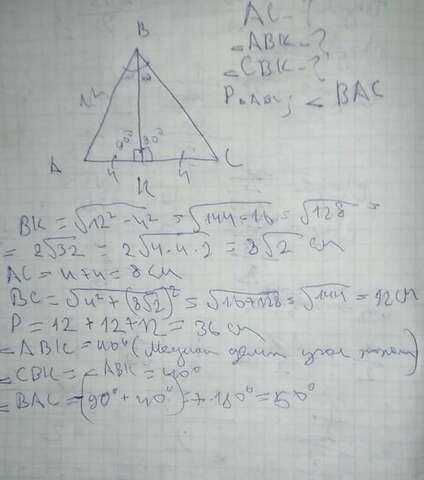 AC - ?
∠ABK - ?
∠CBK - ?
P ABC; ∠ BAC
B
12
90° 90°
A 4 K 4 C
BK = √12² - 4² = √144 - 16 = √128 =
= 2√32 = 2√4·4·2 = 8√2 см
AC = 4+4 = 8 см
BC = √4² + (8√2)² = √16+128 = √144 = 12 см
P = 12 + 12 + 12 = 36 см
∠ABK = 40° (Медиана делит угол)
∠CBK = ∠ABK = 40°
∠BAC = (90° + 40°) = + 180° = 50°